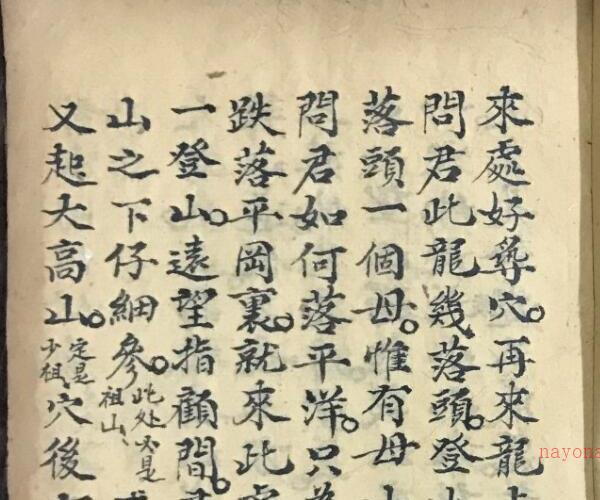 來處好尋穴。再來龍
問君此龍幾落頭。登
落頭一個母。惟有母
問君如何落平洋。只
跌落平岡裏。就來此
一登山。遠望指顧間。
山之下仔細參。此处必是祖山、
又起大高山。定是少祖、穴後
nayona